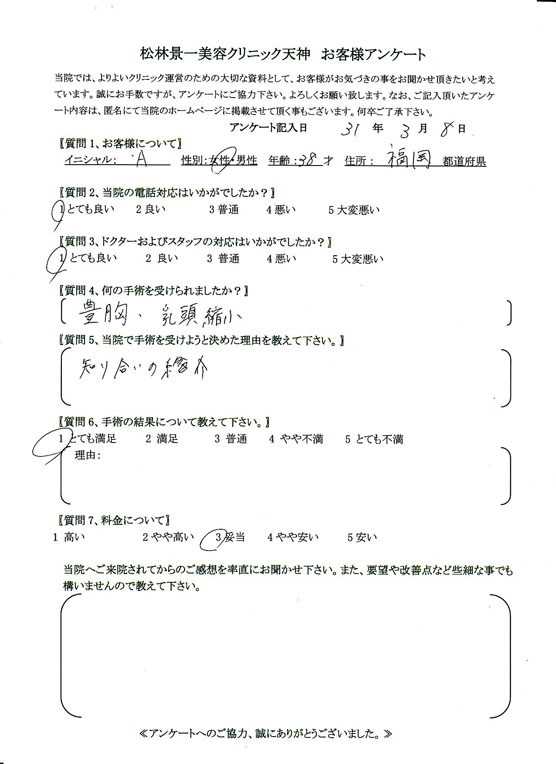 松林景一美容クリニック天神　お客様アンケート
当院では、よりよいクリニック運営のための大切な資料として、お客様がお気づきの事をお聞かせ頂きたいと考え
ています。誠にお手数ですが、アンケートにご協力下さい。よろしくお願い致します。なお、ご記入頂いたアンケ
ート内容は、匿名にて当院のホームページに掲載させて頂く事もございます。何卒ご了承下さい。
アンケート記入日　31 年 3 月 8 日
【質問1、お客様について】
イニシャル： A　性別：女性・男性　年齢：38才　住所： 福岡 都道府県
【質問2、当院の電話対応はいかがでしたか？】
1 とても良い　2 良い　3 普通　4 悪い　5 大変悪い
【質問3、ドクターおよびスタッフの対応はいかがでしたか？】
1 とても良い　2 良い　3 普通　4 悪い　5 大変悪い
【質問4、何の手術を受けられましたか？】
豊胸、乳頭縮小
【質問5、当院で手術を受けようと決めた理由を教えて下さい。】
知り合いの紹介
【質問6、手術の結果について教えて下さい。】
1 とても満足　2 満足　3 普通　4 やや不満　5 とても不満
理由：
【質問7、料金について】
1 高い　2 やや高い　3 妥当　4 やや安い　5 安い
当院へご来院されてからのご感想を率直にお聞かせ下さい。また、要望や改善点など些細な事でも
構いませんので教えて下さい。
≪アンケートへのご協力、誠にありがとうございました。≫